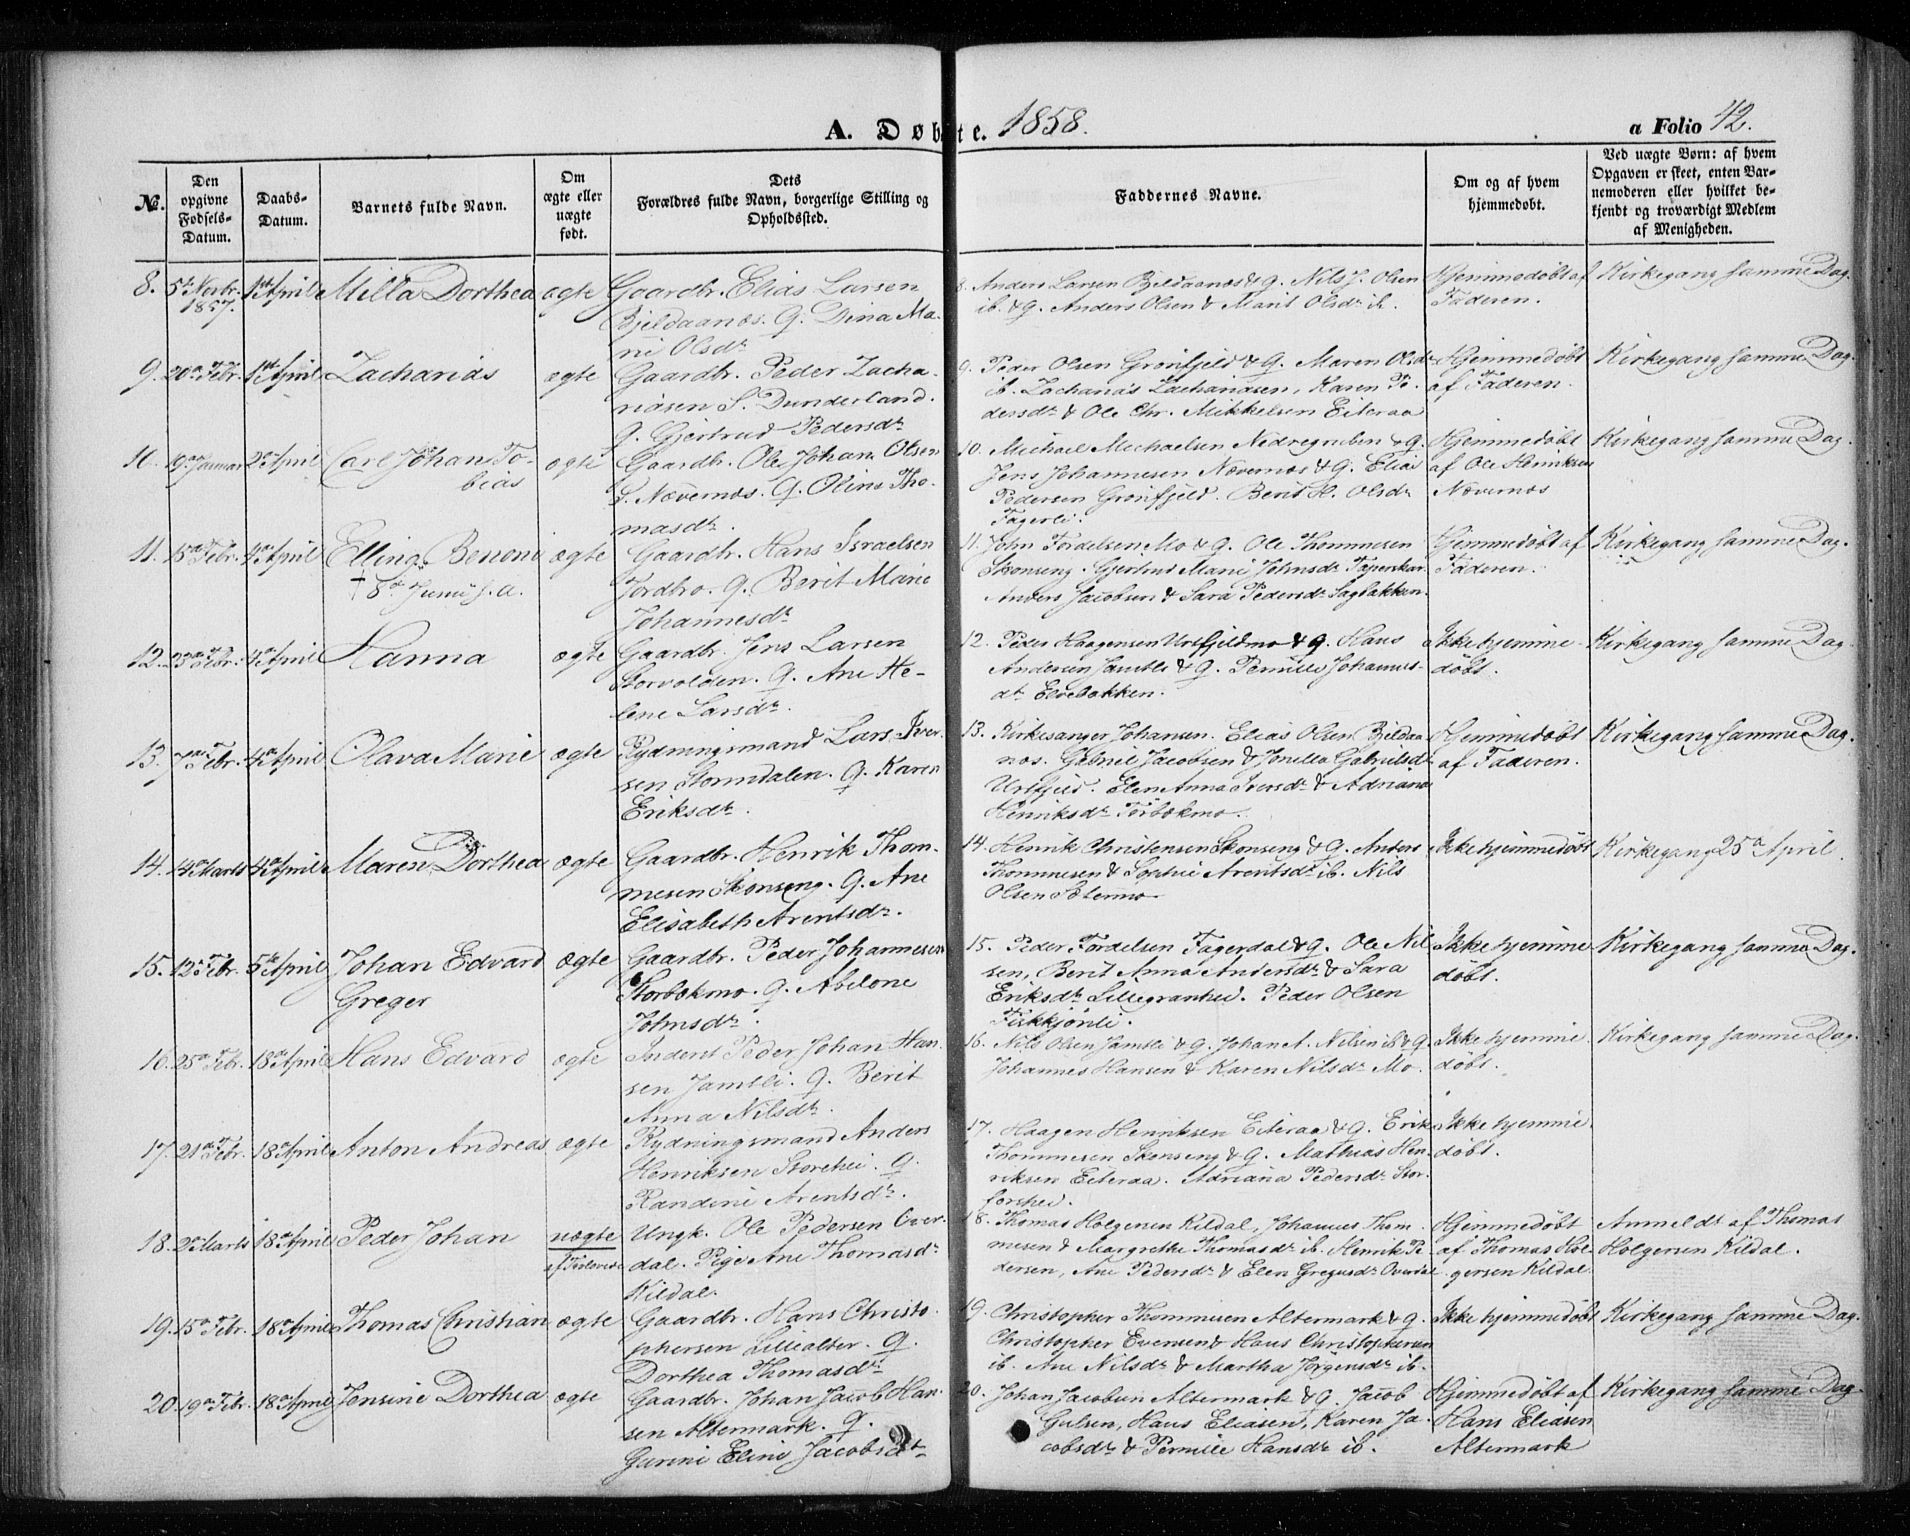 A. Døbte. 1858.
a Folio 42.
№.
Den opgivne Fødsels-Datum.
Daabs-Datum.
Barnets fulde Navn.
Om ægte eller uægte født.
Dets Forældres fulde Navn, borgerlige Stilling og Opholdssted.
Faddernes Navne.
Om og af hvem hjemmedøbt.
Ved uægte Børn: af hvem Opgaven er skeet, enten Barnemoderen eller hvilket bekjendt og troværdigt Medlem af Menigheden.
8. 5te Novbr. 1857. 1ste April Milla Dorthea ægte
Gaardbr. Elias Larsen
Bjeldaanæs. Q. Dina Ma-
rie Olsdr
8. Anders Larsen Bjeldaanæs & Q. Nils J. Olsen
ib. & Q. Anders Olsen & Marit Olsdr ib.
Hjemmedøbt af
Faderen.
Kirkegang samme Dag.
9. 20de Febr. 1ste April Zacharias ægte
Gaardbr. Peder Zacha-
riasen S. Dunderland.
Q. Gjertrud Pedersdr
9. Peder Olsen Grønfjeld & Q. Maren Olsdr
ib. Zacharias Zachariasen, Karen Pe-
dersdr & Ole Chr. Mikkelsen Eiteraa
Hjemmedøbt
af Faderen.
Kirkegang samme Dag.
10. 19de Januar 2den April Carl Johan To-
bias ægte
Gaardbr. Ole Johan Olsen
S. Nævernæs. Q. Oline Tho-
masdr.
10. Michael Michaelsen Nedregruben & Q.
Jens Johannesen Nævernæs & Q. Elias
Pedersen Grønfjeld. Berit H. Olsdr
Fagerli.
Hjemmedøbt
af Ole Henriksen
Nævernæs
Kirkegang samme Dag.
11. 15de Febr. 4de April Elling Benoni ægte
† 8de Junii s. a.
Gaardbr. Hans Israelsen
Jordbro. Q. Berit Marie
Johannesdr
11. John Tordelsen Mo & Q. Ole Thommesen
Skonseng. Gjertrud Marie Johnsdr
Anders Jacobsen & Sara Pedersdr Sagbakken.
Hjemmedøbt af
Faderen.
Kirkegang samme Dag.
12. 23de Febr. 4de April Hanna ægte
Gaardbr. Jens Larsen
Storvolden. Q. Ane He-
lene Larsdr.
12. Peder Haagensen Urtfjeldmo & Q. Hans
Andersen Jamtli & Q. Pernille Johannes-
dr Elvebakken.
Ikke hjemme-
døbt.
Kirkegang samme Dag.
13. 7de Febr. 4de April Olava Marie ægte
Rydningsmand Lars Iver-
sen Stormdalen. Q. Karen
Eriksdr.
13. Kirkesanger Johansen. Elias Olsen Bjeldaa-
næs. Gabriel Jacobsen & Jonilla Gabrielsdr
Urtfjeld. Elen Anna Iversdr & Adriana
Henriksdr Storbækmo.
Hjemmedøbt
af Faderen.
Kirkegang samme Dag.
14. 14de Marts 4de April Maren Dorthea ægte
Gaardbr. Henrik Thom-
mesen Skonseng. Q. Ane
Elisabeth Arentsdr.
14. Henrik Christensen Skonseng & Q. Anders
Thommesen & Sophie Arentsdr ib. Nils
Olsen Sætermo
Ikke hjemmedøbt
Kirkegang 25de April.
15. 12te Febr. 5te April Johan Edvard
Greger ægte
Gaardbr. Peder Johannesen
Storbækmo. Q. Abelone
Johnsdr.
15. Peder Tordelsen Fagerdal & Q. Ole Nil-
sen, Berit Anna Andersdr & Sara
Eriksdr Lillegranhei. Peder Olsen
Fiskkjønli.
Ikke hjemme
døbt.
Kirkegang samme Dag.
16. 25de Febr. 18de April Hans Edvard ægte
Inderst Peder Johan Han-
sen Jamtli. Q. Berit
Anna Nilsdr.
16. Nils Olsen Jamtli & Q. Johan A. Nilsen ib & Q.
Johannes Hansen & Karen Nilsdr Mo.
Ikke hjemme
døbt.
Kirkegang samme Dag.
17. 21de Febr. 18de April Anton Andreas ægte
Rydningsmand Anders
Henriksen Storehei. Q.
Randine Arentsdr.
17. Haagen Henriksen Eiteraa & Q. Erik
Thommesen Skonseng & Q. Mathias Hen-
riksen Eiteraa. Adriana Pedersdr Stor-
forshei.
Ikke hjemme
døbt.
18. 2den Marts 18de April Peder Johan uægte
af Forlovede
Ungk. Ole Pedersen Over-
dal. Pige Ane Thomasdr
Kildal.
18. Thomas Holgersen Kildal, Johannes Thom-
mesen & Margrethe Thomasdr ib. Henrik Pe-
dersen, Ane Pedersdr & Elen Gregusdr Overdal
Hjemmedøbt
af Thomas Hol-
gersen Kildal
Anmeldt af Thomas
Holgersen Kildal.
19. 15de Febr. 18de April Thomas Christian ægte
Gaardbr. Hans Christo-
phersen Lillealter. Q.
Dorthea Thomasdr
19. Christopher Thommesen Altermark & Q.
Christopher Evensen & Hans Christophersen
ib. Ane Nilsdr & Martha Jørgensdr ib.
Ikke hjemmedøbt
Kirkegang samme Dag.
20. 19de Febr. 18de April Jonsine Dorthea ægte
Gaardbr. Johan Jacob Han-
sen Altermark. Q.
Gurine Eline Jacobsdr
20. Johan Jacobsen Altermark & Q. Jacob
Gulsen, Hans Eliasen, Karen Ja-
cobsdr & Pernille Hansdr ib.
Hjemmedøbt af
Hans Eliasen
Altermark
Kirkegang samme Dag.